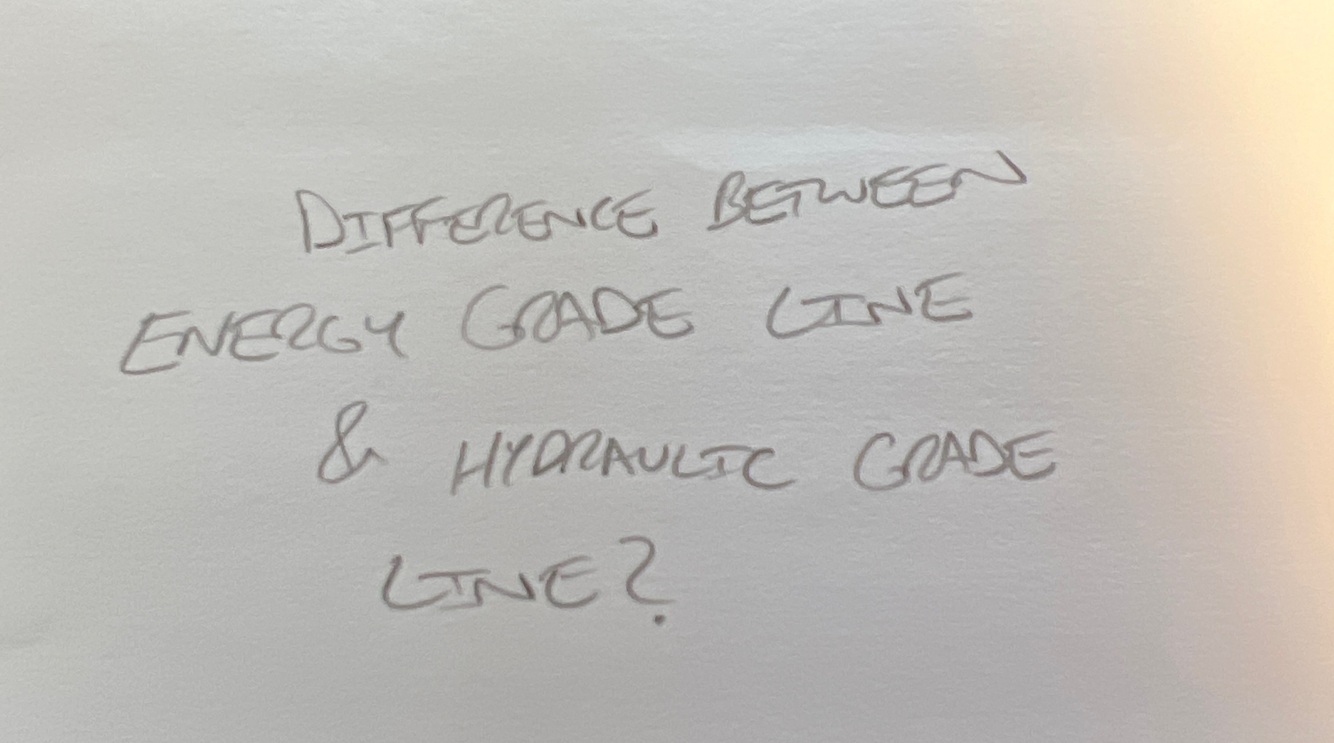 DIFFERENCE BETWEEN
ENERGY GRADE LINE
& HYDRAULIC GRADE
LINE?